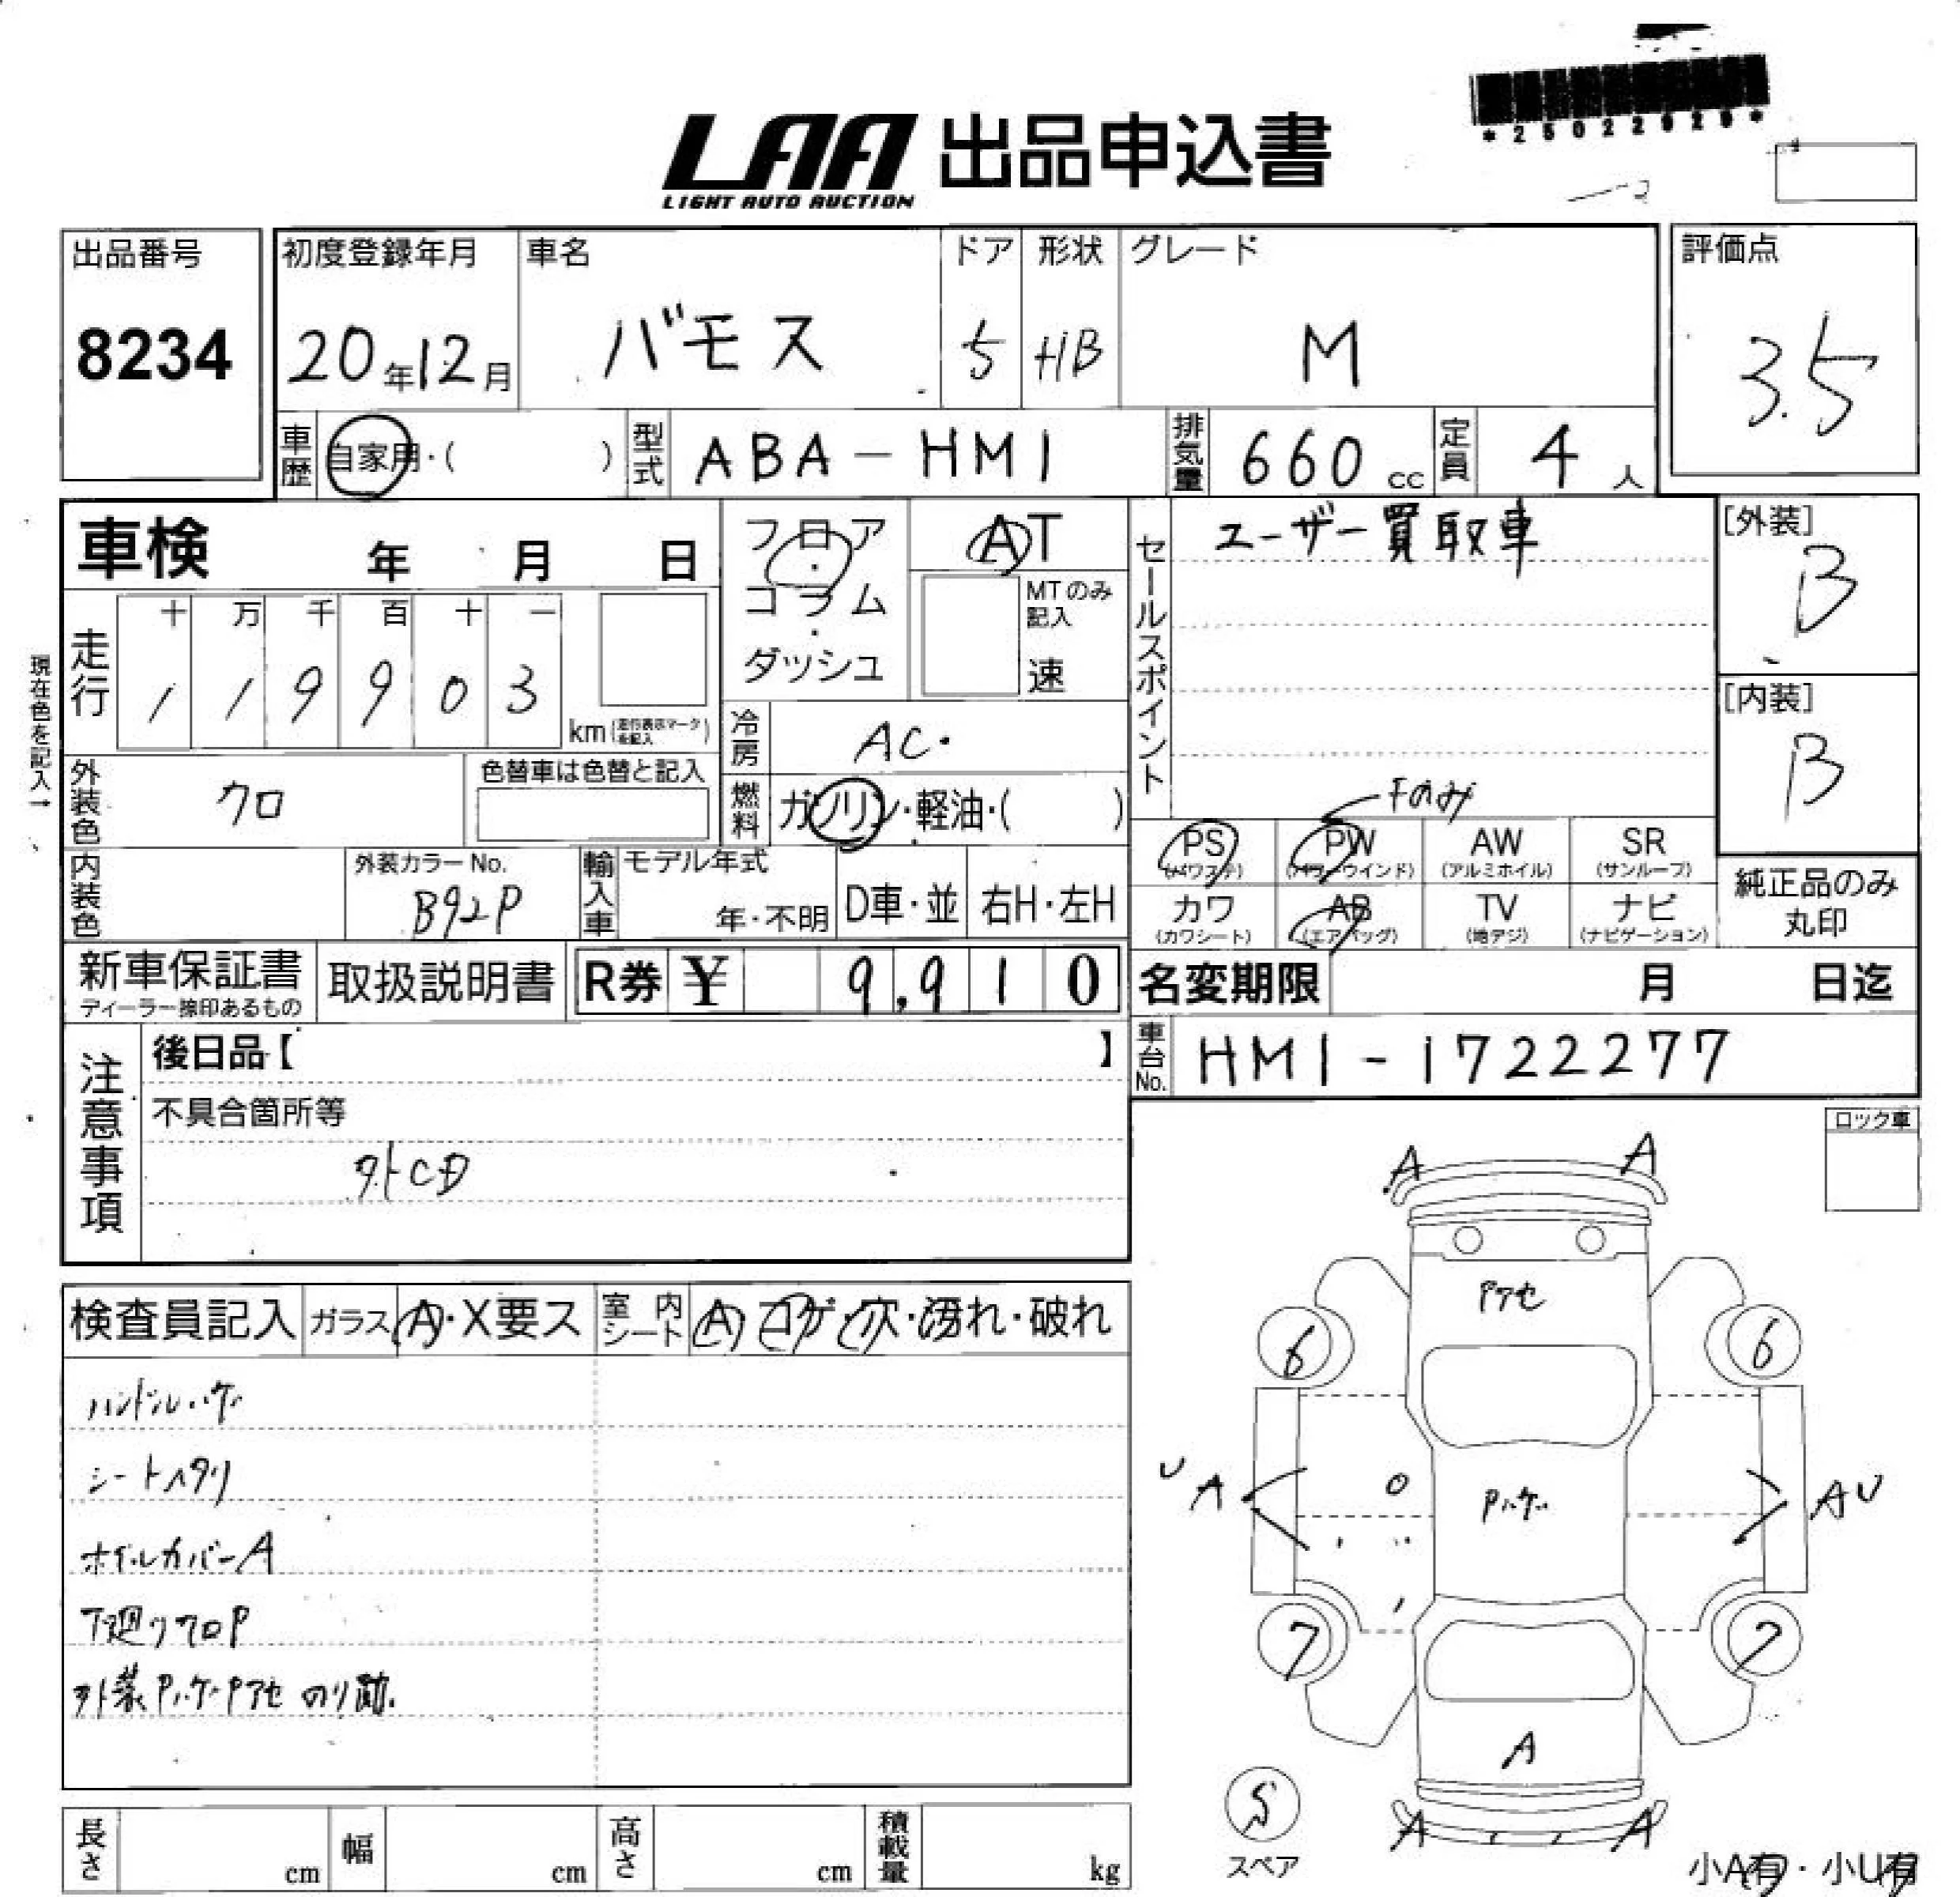 *25022929*
LAA 出品申込書
LIGHT AUTO AUCTION
出品番号 初度登録年月 車名 ドア 形状 グレード 評価点
8234 20年12月 バモス 5 HB M 3.5
車歴 自家用・( ) 型式 ABA-HM1 排気量 660cc 定員 4人
車検 年 月 日 フロア・コラム・ダッシュ AT セールスポイント ユーザー買取車 [外装] B
MTのみ記入 速
走行 十 万 千 百 十 一
1 1 9 9 0 3 km(走行表示マークを記入)
[内装] B
現在色を記入→
冷房 AC
外装色 クロ 色替車は色替と記入 燃料 ガソリン・軽油・( )
Fのみ
PS(パワステ) PW(パワーウインド) AW(アルミホイル) SR(サンルーフ)
内装色 外装カラーNo. B92P 輸入車 モデル年式 年・不明 D車・並 右H・左H
カワ(カワシート) AB(エアバッグ) TV(地デジ) ナビ(ナビゲーション) 純正品のみ丸印
新車保証書 ディーラー捺印あるもの 取扱説明書 R券 ¥ 9,910 名変期限 月 日迄
車台No. HM1-1722277
注意事項 後日品【 】
不具合箇所等
外CD
ロック車
検査員記入 ガラス A・X要ス 室内シート A コゲ・穴・汚れ・破れ
ハンドルハゲ
シートヘタリ
ホイルカバーA
下廻りクロP
外装PハゲPアセ のり跡.
A A
Pアセ
6 6
U A Pハゲ A U
7 7
A
S
スペア
A A
小A有・小U有
長さ cm 幅 cm 高さ cm 積載量 kg